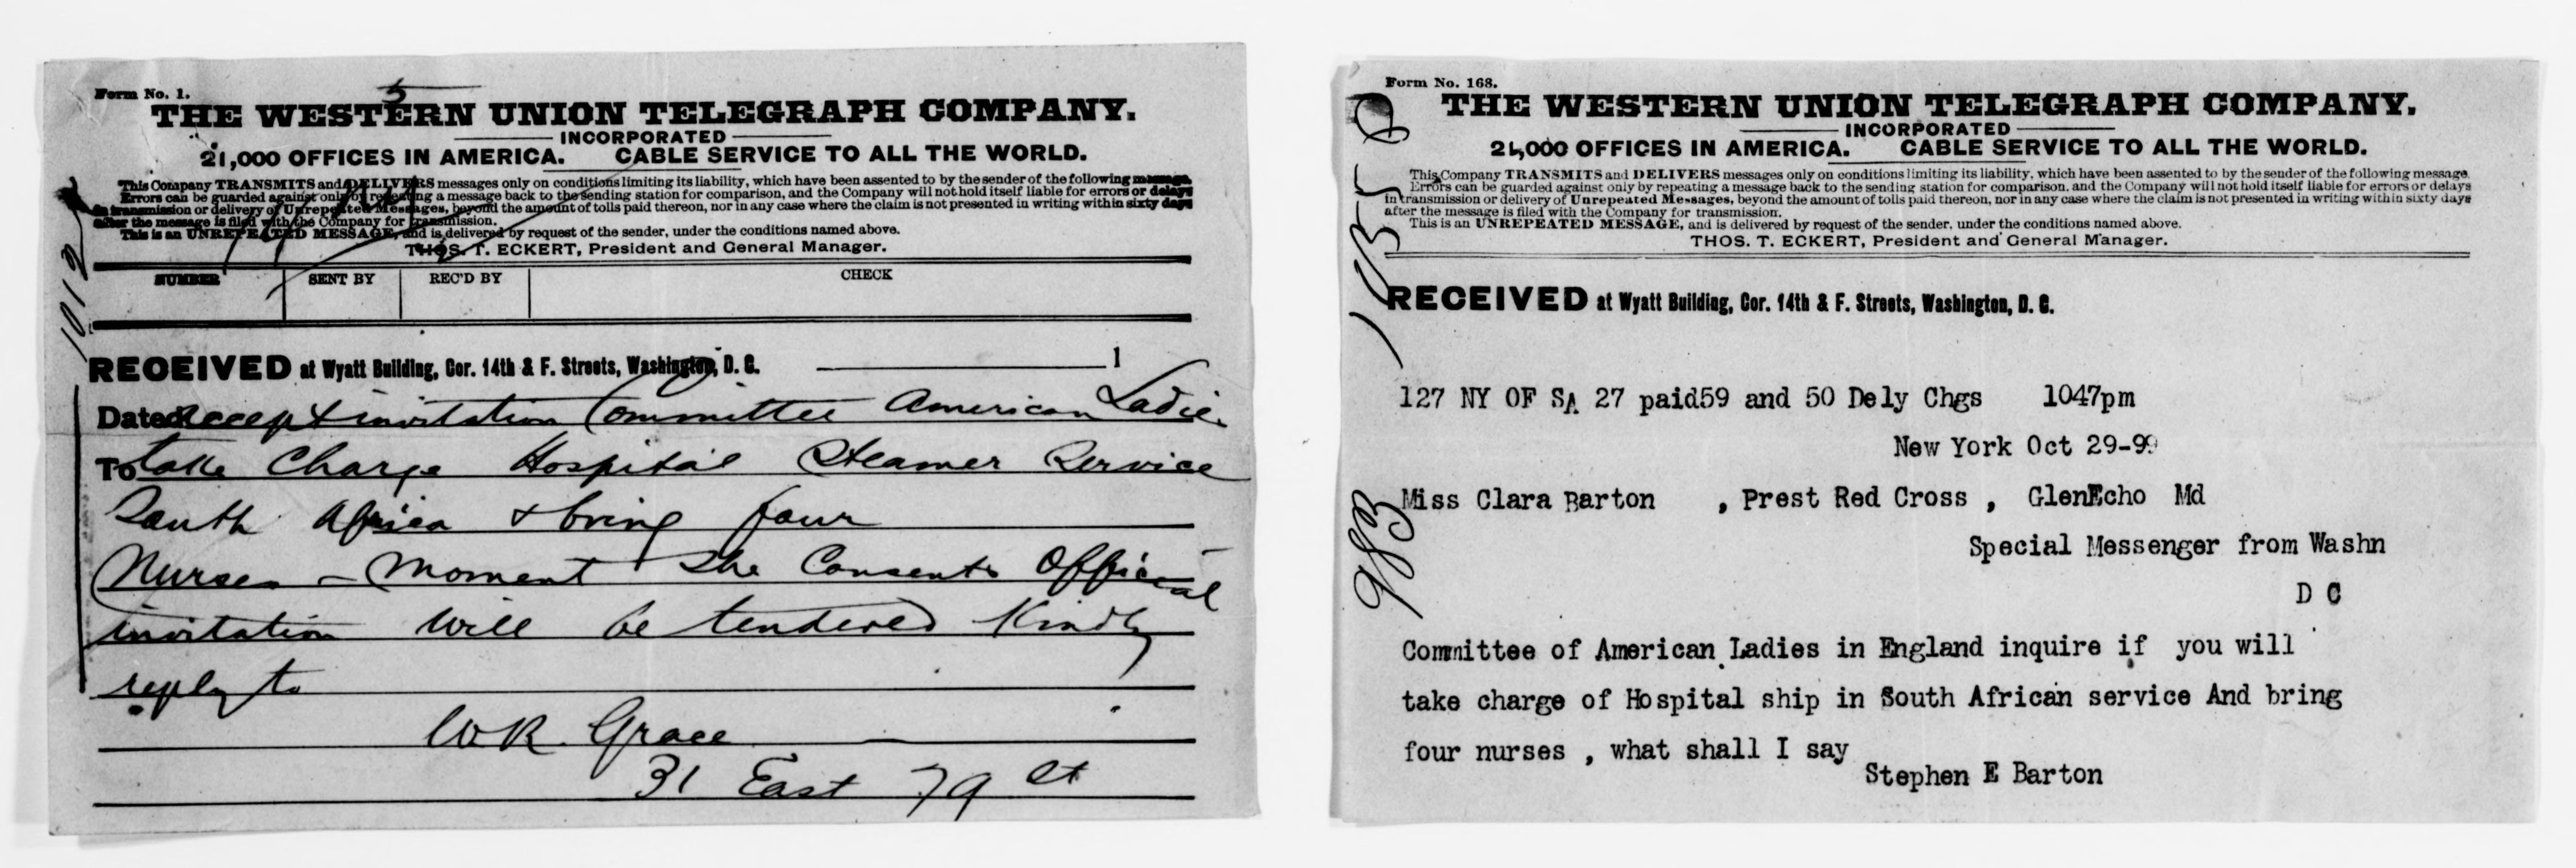 5
Form No. 1.
THE WESTERN UNION TELEGRAPH COMPANY.
INCORPORATED
21,000 OFFICES IN AMERICA. CABLE SERVICE TO ALL THE WORLD.
This Company TRANSMITS and DELIVERS messages only on conditions limiting its liability, which have been assented to by the sender of the following message.
Errors can be guarded against only by repeating a message back to the sending station for comparison, and the Company will not hold itself liable for errors or delays
in transmission or delivery of Unrepeated Messages, beyond the amount of tolls paid thereon, nor in any case where the claim is not presented in writing within sixty days
after the message is filed with the Company for transmission.
This is an UNREPEATED MESSAGE, and is delivered by request of the sender, under the conditions named above.
THOS. T. ECKERT, President and General Manager.
NUMBER SENT BY REC'D BY CHECK
RECEIVED at Wyatt Building, Cor. 14th & F. Streets, Washington, D. C. 1
Dated accept invitation Committee American Ladies
To take Charge Hospital Steamer Service
South Africa & bring four
Nurses - Moment She Consents Official
invitation will be tendered Kindly
reply to
W R Grace
31 East 79 St
Form No. 168.
THE WESTERN UNION TELEGRAPH COMPANY.
INCORPORATED
21,000 OFFICES IN AMERICA. CABLE SERVICE TO ALL THE WORLD.
This Company TRANSMITS and DELIVERS messages only on conditions limiting its liability, which have been assented to by the sender of the following message.
Errors can be guarded against only by repeating a message back to the sending station for comparison, and the Company will not hold itself liable for errors or delays
in transmission or delivery of Unrepeated Messages, beyond the amount of tolls paid thereon, nor in any case where the claim is not presented in writing within sixty days
after the message is filed with the Company for transmission.
This is an UNREPEATED MESSAGE, and is delivered by request of the sender, under the conditions named above.
THOS. T. ECKERT, President and General Manager.
RECEIVED at Wyatt Building, Cor. 14th & F. Streets, Washington, D. C.
127 NY OF SA 27 paid59 and 50 Dely Chgs 1047pm
New York Oct 29-99
Miss Clara Barton , Prest Red Cross , GlenEcho Md
Special Messenger from Washn
D C
Committee of American Ladies in England inquire if you will
take charge of Hospital ship in South African service And bring
four nurses , what shall I say
Stephen E Barton